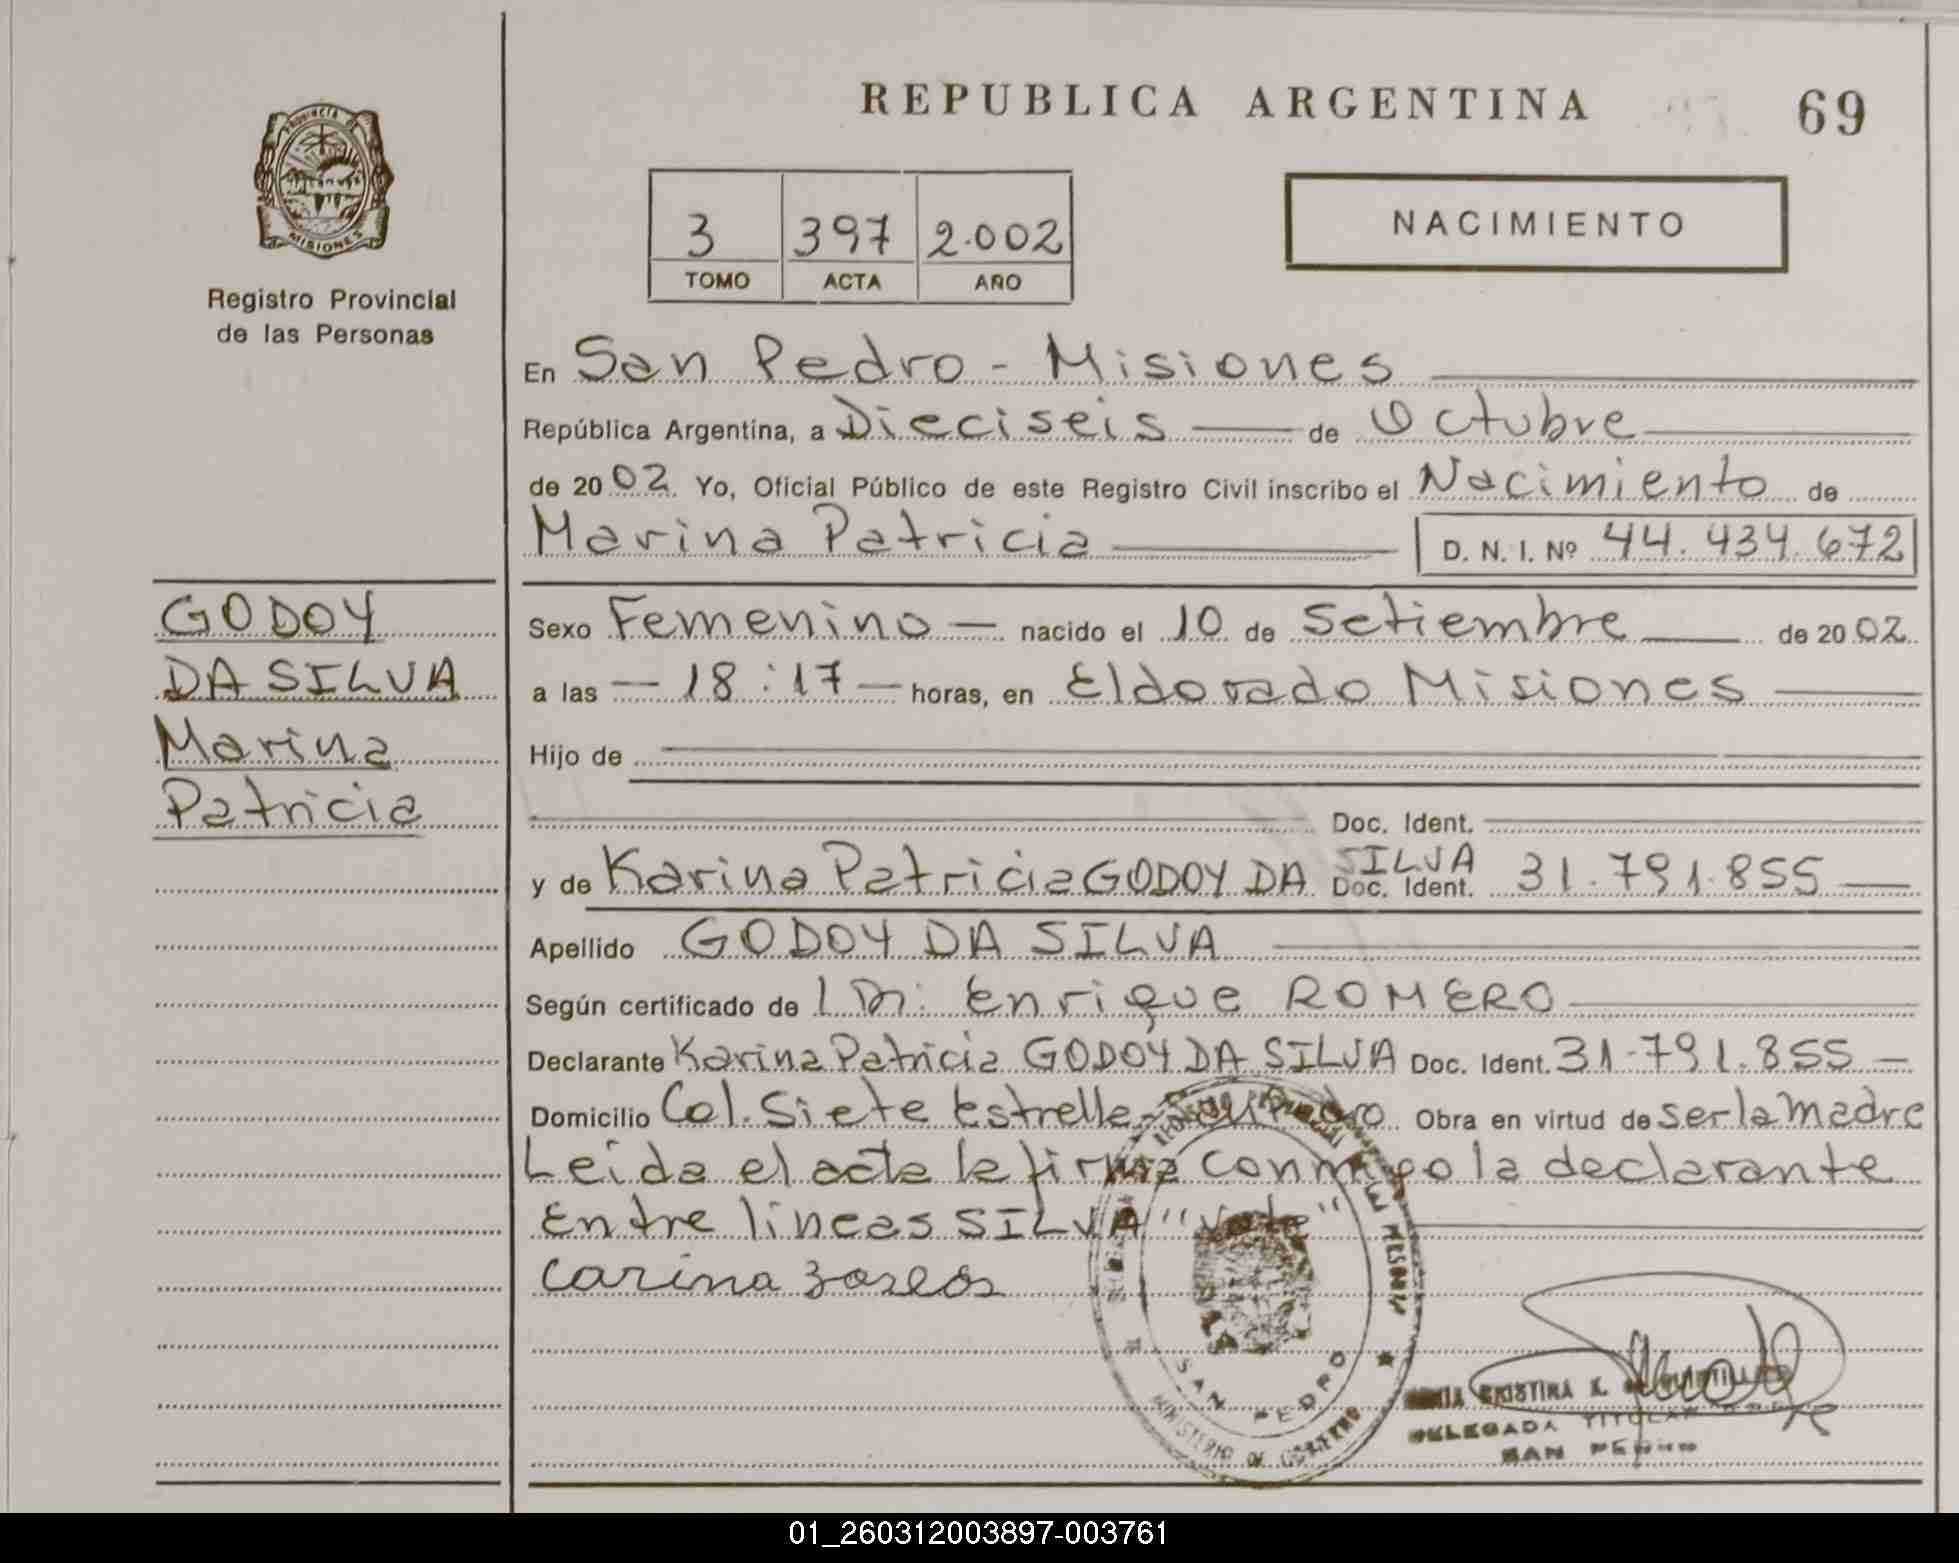 REPUBLICA ARGENTINA
69
PROVINCIA DE
MISIONES
Registro Provincial
de las Personas
3 397 2.002
TOMO ACTA AÑO
NACIMIENTO
En San Pedro - Misiones
República Argentina, a Dieciseis de Octubre
de 2002 Yo, Oficial Público de este Registro Civil inscribo el Nacimiento de
Marina Patricia D. N. I. Nº 44.434.672
GODOY
DA SILVA
Marina
Patricia
Sexo Femenino nacido el 10 de Setiembre de 2002
a las - 18:17 - horas, en Eldorado Misiones
Hijo de
Doc. Ident.
y de Karina Patricia GODOY DA SILVA Doc. Ident. 31.791.855
Apellido GODOY DA SILVA
Según certificado de Enrique ROMERO
Declarante Karina Patricia GODOY DA SILVA Doc. Ident. 31.791.855
Domicilio Col. Siete Estrelle Obra en virtud de ser la madre
Leida el acta la firma conmigo la declarante
Entre lineas SILVA "Vale"
Carina
SAN PEDRO
MINISTERIO DE GOBIERNO
CRISTINA K.
DELEGADA TITULAR
SAN PEDRO
01_260312003897-003761